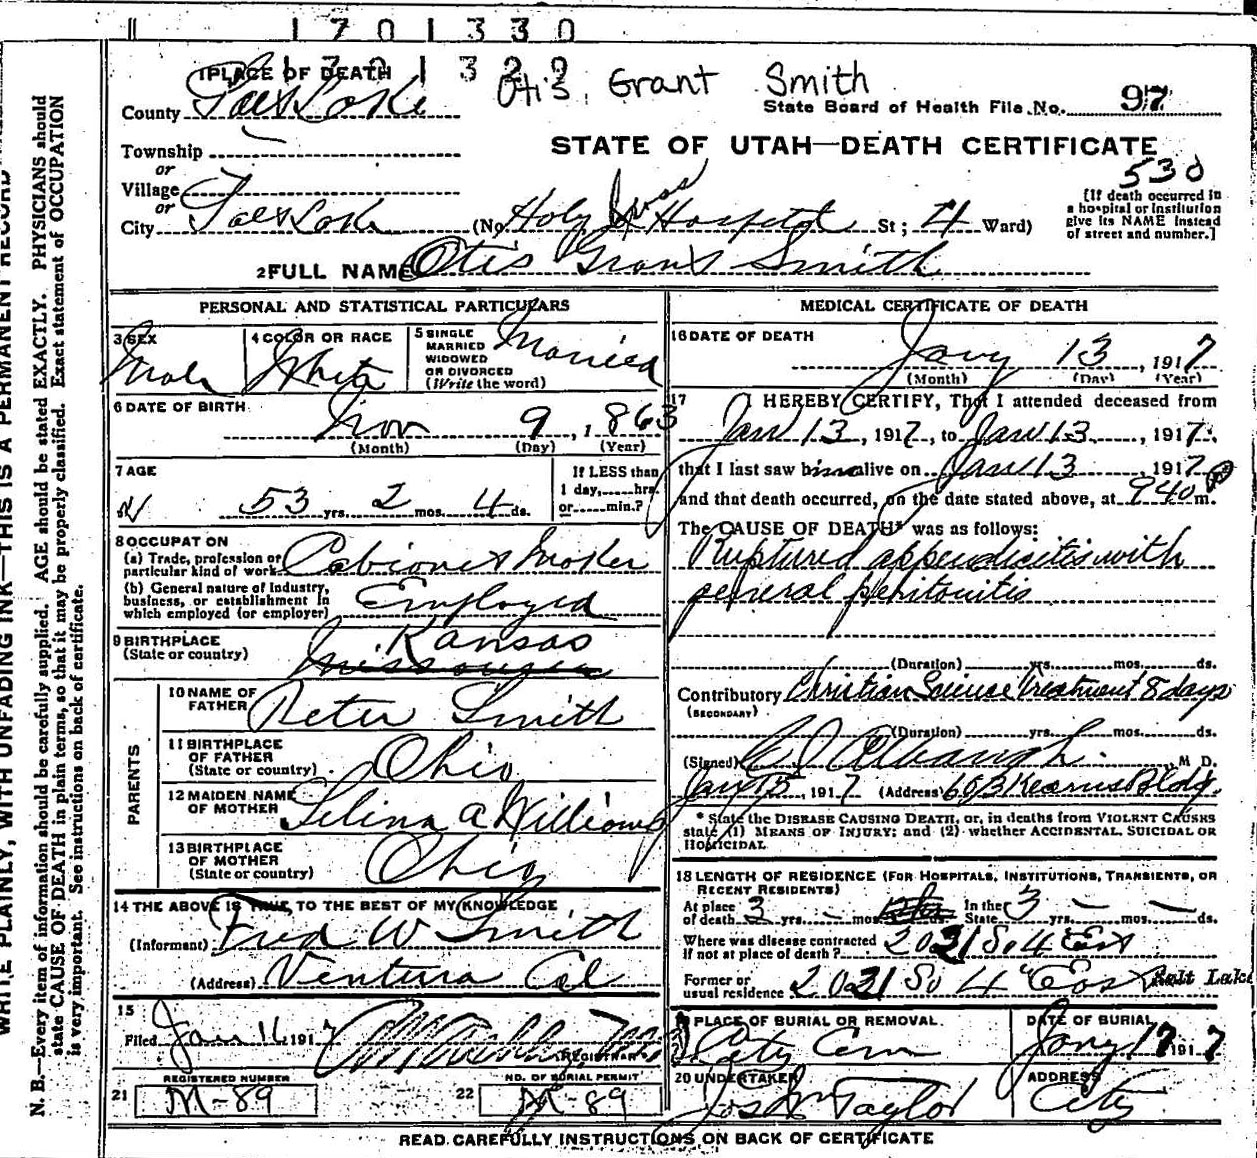 1701330
1701329
Otis Grant Smith
1 PLACE OF DEATH
County Salt Lake
State Board of Health File No. 97
Township
or
Village
or
City Salt Lake
STATE OF UTAH—DEATH CERTIFICATE
530
(No Holy Cross Hospital St; 4 Ward)
[If death occurred in
a hospital or institution
give its NAME instead
of street and number.]
2 FULL NAME Otis Grant Smith
PERSONAL AND STATISTICAL PARTICULARS
3 SEX
Male
4 COLOR OR RACE
White
5 SINGLE
MARRIED
WIDOWED
OR DIVORCED
(Write the word)
Married
6 DATE OF BIRTH
Nov 9, 1863
(Month) (Day) (Year)
7 AGE
53 yrs. 2 mos. 4 ds.
If LESS than
1 day, hrs.
or min.?
8 OCCUPATION
(a) Trade, profession or
particular kind of work Cabinet Maker
(b) General nature of Industry,
business, or establishment in
which employed (or employer) Employed
9 BIRTHPLACE
(State or country)
Kansas
Missouri
PARENTS
10 NAME OF
FATHER Peter Smith
11 BIRTHPLACE
OF FATHER
(State or country) Ohio
12 MAIDEN NAME
OF MOTHER Selina A Williams
13 BIRTHPLACE
OF MOTHER
(State or country) Ohio
14 THE ABOVE IS TRUE, TO THE BEST OF MY KNOWLEDGE
(Informant) Fred W Smith
(Address) Ventura Cal
15
Filed Jan 16 1917
REGISTRAR
REGISTERED NUMBER
21 M-89
NO. OF BURIAL PERMIT
22 M-89
MEDICAL CERTIFICATE OF DEATH
16 DATE OF DEATH
Jany 13, 1917
(Month) (Day) (Year)
17 I HEREBY CERTIFY, That I attended deceased from
Jan 13, 1917, to Jan 13, 1917,
that I last saw him alive on Jan 13 1917
and that death occurred, on the date stated above, at 940 P m.
The CAUSE OF DEATH* was as follows:
Ruptured appendicitis with
general peritonitis
(Duration) yrs. mos. ds.
Contributory Christian Science Treatment 8 days
(SECONDARY)
(Duration) yrs. mos. ds.
(Signed) M D.
Jany 15, 1917 (Address) 603 Kearns Bldg.
* State the DISEASE CAUSING DEATH, or, in deaths from VIOLENT CAUSES
state (1) MEANS OF INJURY; and (2) whether ACCIDENTAL, SUICIDAL OR
HOMICIDAL
18 LENGTH OF RESIDENCE (FOR HOSPITALS, INSTITUTIONS, TRANSIENTS, OR
RECENT RESIDENTS)
At place of death 3 yrs. - mos. In the State 3 yrs. - mos. - ds.
Where was disease contracted
If not at place of death? 2031 So 4 East
Former or
usual residence 2031 So 4 East Salt Lake
19 PLACE OF BURIAL OR REMOVAL
City Cem
DATE OF BURIAL
Jany 17 1917
20 UNDERTAKER
Jos Wm Taylor
ADDRESS
City
READ CAREFULLY INSTRUCTIONS ON BACK OF CERTIFICATE
WRITE PLAINLY, WITH UNFADING INK—THIS IS A PERMANENT RECORD
N. B.—Every item of information should be carefully supplied. AGE should be stated EXACTLY. PHYSICIANS should
state CAUSE OF DEATH in plain terms, so that it may be properly classified. Exact statement of OCCUPATION
is very important. See instructions on back of certificate.